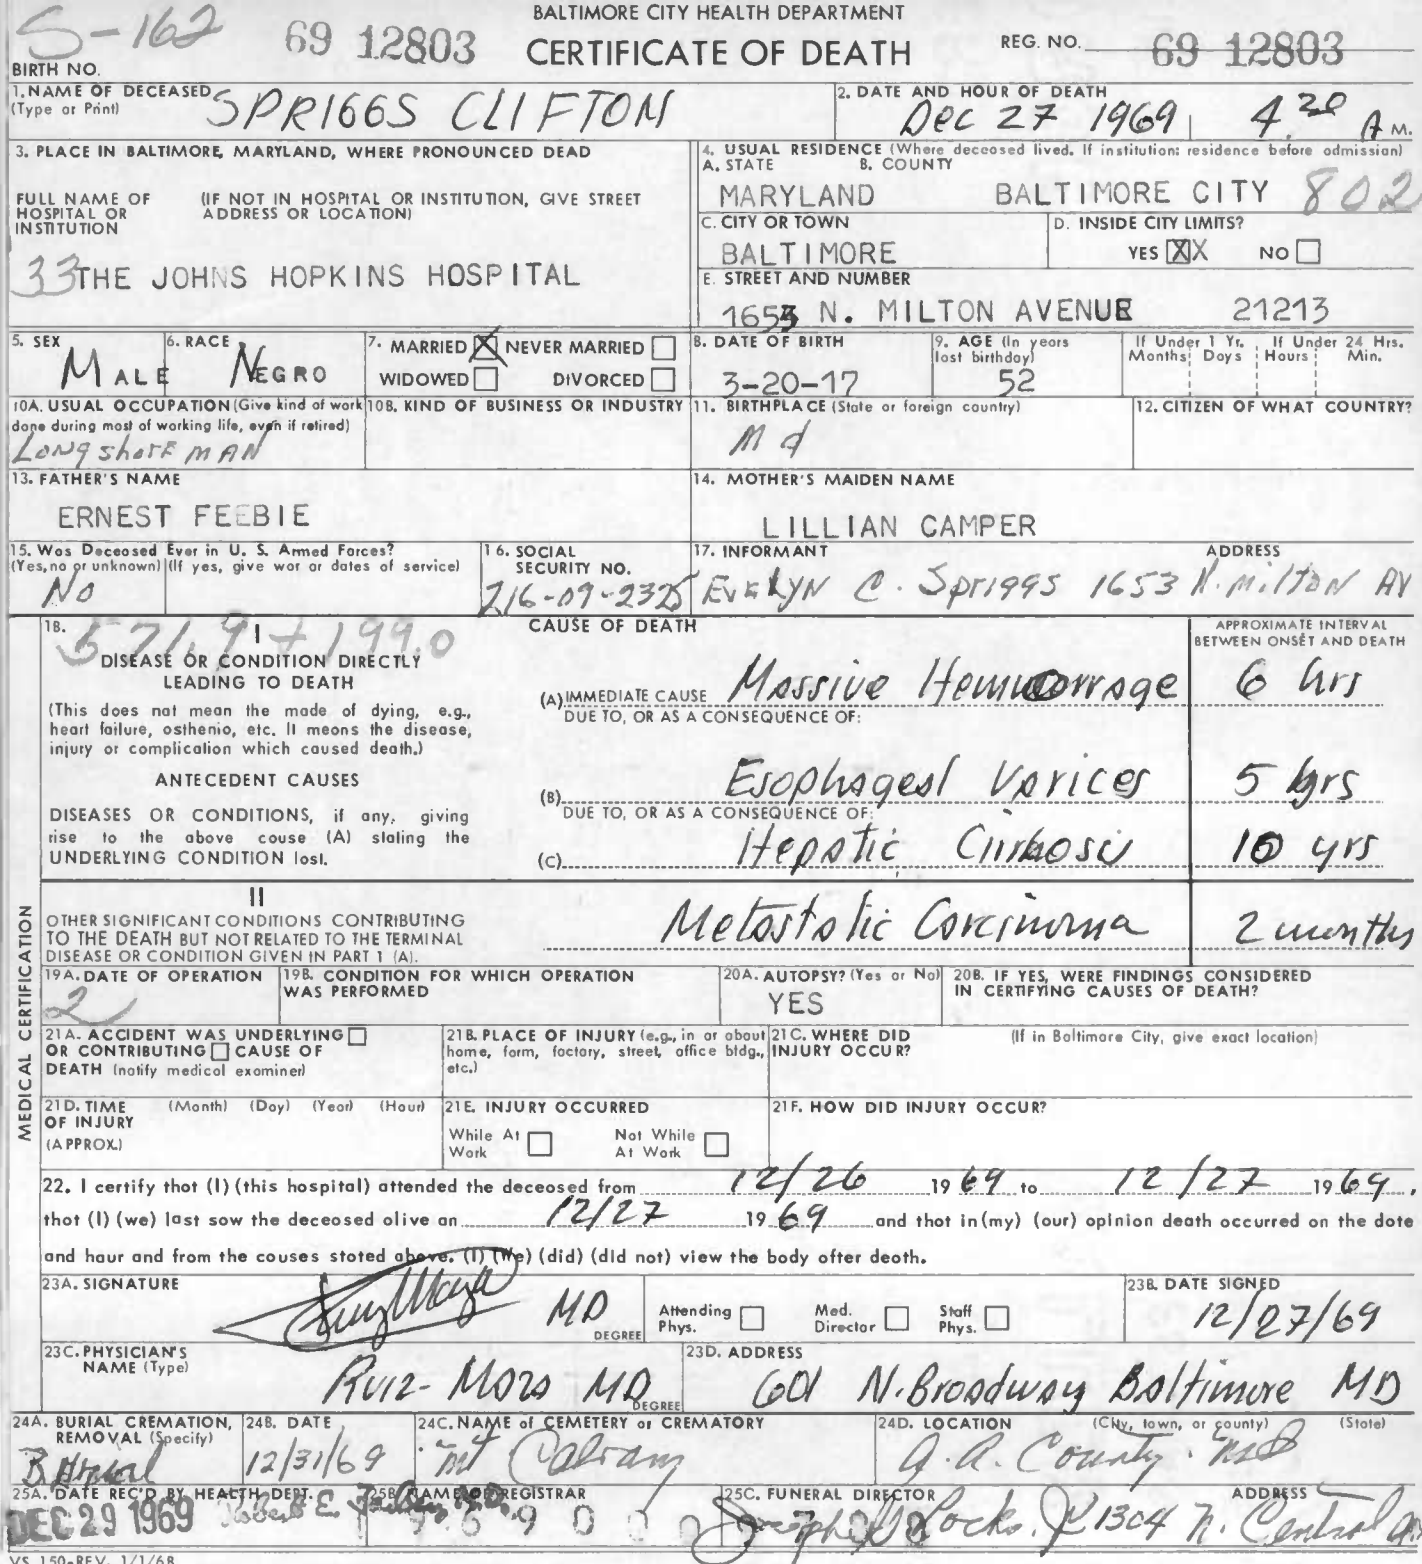 BALTIMORE CITY HEALTH DEPARTMENT
CERTIFICATE OF DEATH
S-162
69 12803
REG. NO. 69 12803
BIRTH NO.
1. NAME OF DECEASED
(Type or Print)
SPRIGGS CLIFTON
2. DATE AND HOUR OF DEATH
Dec 27 1969 4.20 A M.
3. PLACE IN BALTIMORE, MARYLAND, WHERE PRONOUNCED DEAD
FULL NAME OF HOSPITAL OR INSTITUTION
(IF NOT IN HOSPITAL OR INSTITUTION, GIVE STREET ADDRESS OR LOCATION)
33 THE JOHNS HOPKINS HOSPITAL
4. USUAL RESIDENCE (Where deceased lived. If institution: residence before admission)
A. STATE B. COUNTY
MARYLAND BALTIMORE CITY 802
C. CITY OR TOWN
BALTIMORE
D. INSIDE CITY LIMITS?
YES XX NO
E. STREET AND NUMBER
1653 N. MILTON AVENUE 21213
5. SEX
MALE
6. RACE
NEGRO
7. MARRIED X NEVER MARRIED
WIDOWED DIVORCED
8. DATE OF BIRTH
3-20-17
9. AGE (In years last birthday)
52
If Under 1 Yr. Months Days
If Under 24 Hrs. Hours Min.
10A. USUAL OCCUPATION (Give kind of work done during most of working life, even if retired)
Longshoreman
10B. KIND OF BUSINESS OR INDUSTRY
11. BIRTHPLACE (State or foreign country)
Md
12. CITIZEN OF WHAT COUNTRY?
13. FATHER'S NAME
ERNEST FEEBIE
14. MOTHER'S MAIDEN NAME
LILLIAN CAMPER
15. Was Deceased Ever in U. S. Armed Forces?
(Yes, no or unknown) (If yes, give war or dates of service)
No
16. SOCIAL SECURITY NO.
216-09-2325
17. INFORMANT ADDRESS
Evelyn C. Spriggs 1653 N. Milton Av
MEDICAL CERTIFICATION
18. 571.9 + 199.0
I
DISEASE OR CONDITION DIRECTLY LEADING TO DEATH
(This does not mean the mode of dying, e.g., heart failure, asthenia, etc. It means the disease, injury or complication which caused death.)
ANTECEDENT CAUSES
DISEASES OR CONDITIONS, if any, giving rise to the above cause (A) stating the UNDERLYING CONDITION last.
CAUSE OF DEATH
APPROXIMATE INTERVAL BETWEEN ONSET AND DEATH
(A) IMMEDIATE CAUSE Massive Hemorrage 6 hrs
DUE TO, OR AS A CONSEQUENCE OF:
(B) Esophageal Varices 5 yrs
DUE TO, OR AS A CONSEQUENCE OF:
(C) Hepatic Cirrhosis 10 yrs
II
OTHER SIGNIFICANT CONDITIONS CONTRIBUTING TO THE DEATH BUT NOT RELATED TO THE TERMINAL DISEASE OR CONDITION GIVEN IN PART 1 (A).
Metastatic Carcinoma 2 months
19A. DATE OF OPERATION
2
19B. CONDITION FOR WHICH OPERATION WAS PERFORMED
20A. AUTOPSY? (Yes or No)
YES
20B. IF YES, WERE FINDINGS CONSIDERED IN CERTIFYING CAUSES OF DEATH?
21A. ACCIDENT WAS UNDERLYING OR CONTRIBUTING CAUSE OF DEATH (notify medical examiner)
21B. PLACE OF INJURY (e.g., in or about home, farm, factory, street, office bldg., etc.)
21C. WHERE DID INJURY OCCUR?
(If in Baltimore City, give exact location)
21D. TIME OF INJURY (APPROX.)
(Month) (Day) (Year) (Hour)
21E. INJURY OCCURRED
While At Work Not While At Work
21F. HOW DID INJURY OCCUR?
22. I certify that (I) (this hospital) attended the deceased from 12/26 1969 to 12/27 1969,
that (I) (we) last saw the deceased alive on 12/27 1969 and that in (my) (our) opinion death occurred on the date
and hour and from the causes stated above. (I) (We) (did) (did not) view the body after death.
23A. SIGNATURE
MD
DEGREE
Attending Phys. Med. Director Staff Phys.
23B. DATE SIGNED
12/27/69
23C. PHYSICIAN'S NAME (Type)
Ruiz-Moza MD
DEGREE
23D. ADDRESS
601 N. Broadway Baltimore MD
24A. BURIAL CREMATION, REMOVAL (Specify)
Burial
24B. DATE
12/31/69
24C. NAME of CEMETERY or CREMATORY
Mt Calvary
24D. LOCATION (City, town, or county) (State)
A. A. County. Md
25A. DATE REC'D BY HEALTH DEPT.
DEC 29 1969
25B. NAME OF REGISTRAR
Robert E. Farber, M.D.
25C. FUNERAL DIRECTOR ADDRESS
Joseph Locks Jr 1304 N. Central Av
VS 150-REV. 1/1/68